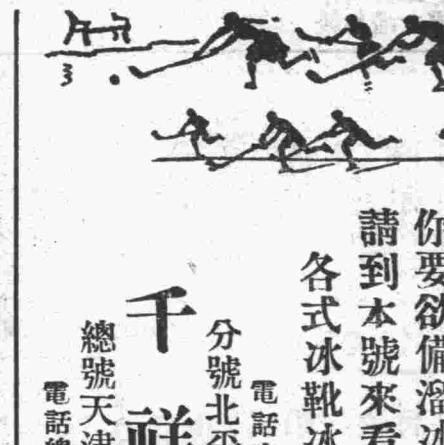 你要欲備溜冰
請到本號來看
各式冰靴冰
電話
分號北平
千祥
總號天津
電話總